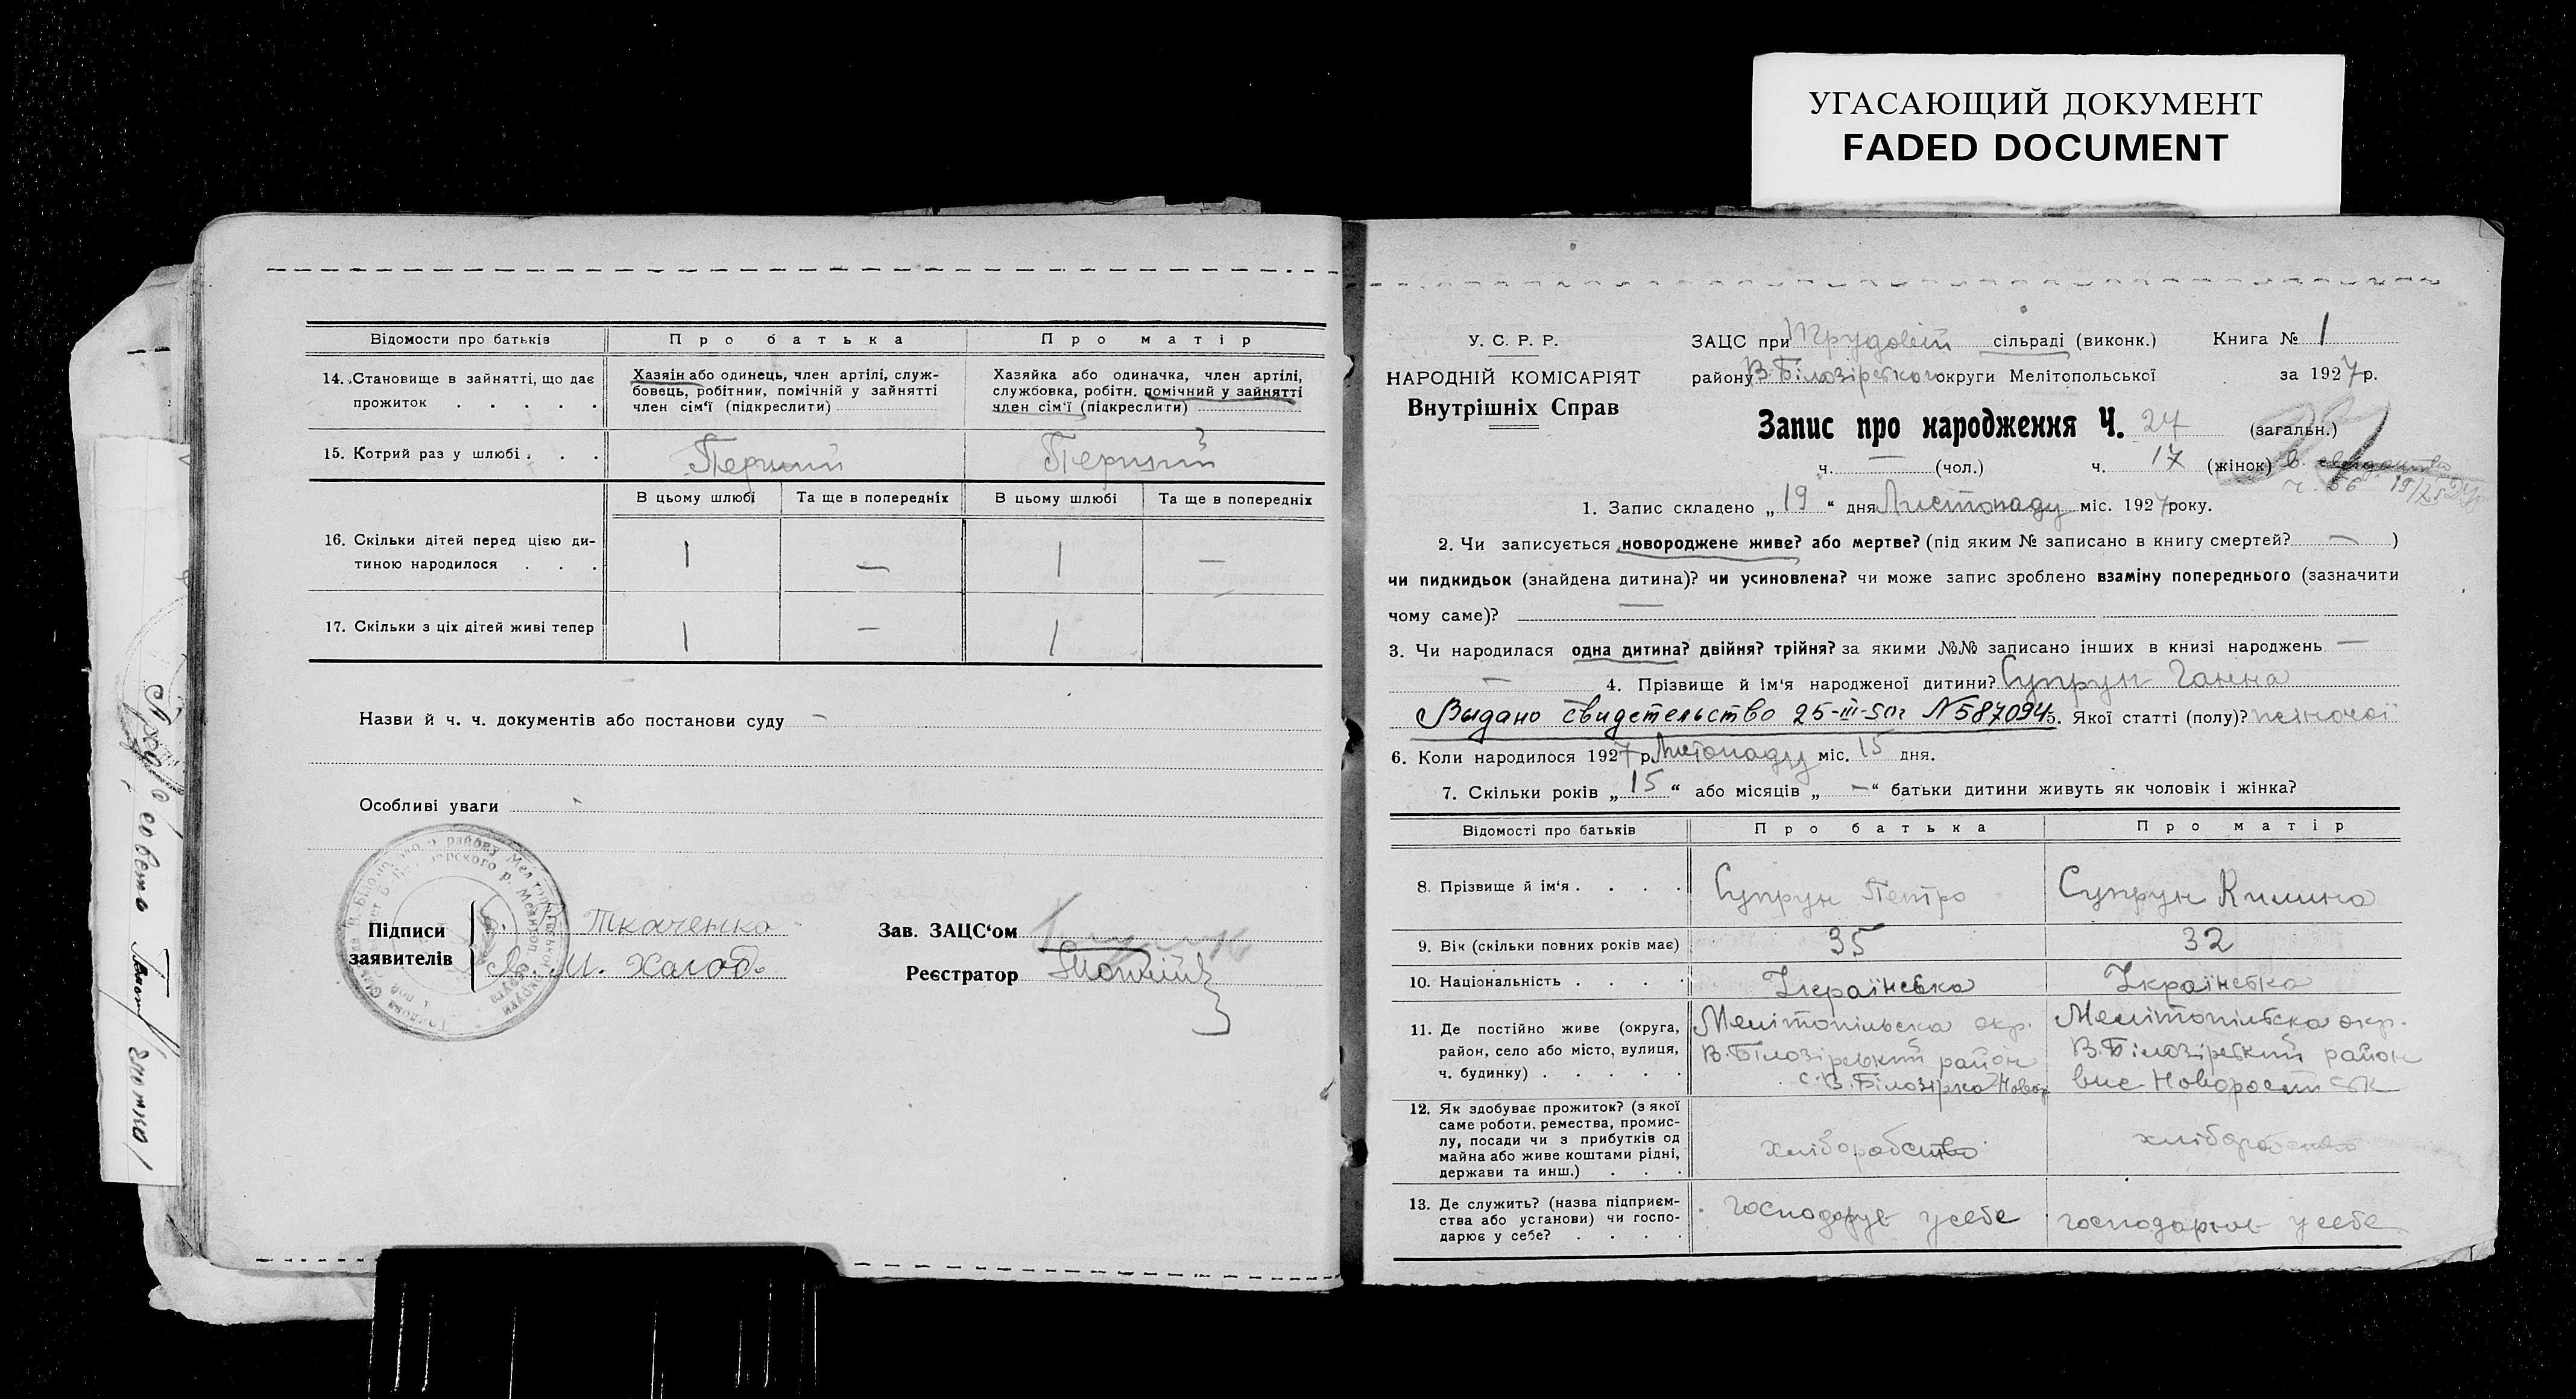 УГАСАЮЩИЙ ДОКУМЕНТ
FADED DOCUMENT
Відомости про батьків Про батька Про матір
14. Становище в зайнятті, що дає прожиток . . . . .
Хазяїн або одинець, член артілі, служ-
бовець, робітник, помічній у зайнятті
член сім'ї (підкреслити)
Хазяйка або одиначка, член артілі,
службовка, робітн. помічний у зайнятті
член сім'ї (підкреслити)
15. Котрий раз у шлюбі . . . Перший Перший
В цьому шлюбі Та ще в попередніх В цьому шлюбі Та ще в попередніх
16. Скільки дітей перед цією ди-
тиною народилося . . . 1 — 1 —
17. Скільки з ціх дітей живі тепер 1 — 1
Назви й ч. ч. документів або постанови суду —
Особливі уваги
Підписи
заявителів
Ткаченко
Зав. ЗАЦС'ом
Реєстратор
У. С. Р. Р.
НАРОДНІЙ КОМІСАРІЯТ
Внутрішніх Справ
ЗАЦС при Трудовій сільраді (виконк.) Книга № 1
району В. Білозірського округи Мелітопольської за 1927 р.
Запис про народження Ч. 27 (загальн.)
ч. — (чол.) ч. 17 (жінок)
1. Запис складено „ 19 “ дня Листопаду міс. 1927 року.
2. Чи записується новороджене живе? або мертве? (під яким № записано в книгу смертей? — )
чи пидкидьок (знайдена дитина)? чи усиновлена? чи може запис зроблено взаміну попереднього (зазначити
чому саме)? —
3. Чи народилася одна дитина? двійня? трійня? за якими №№ записано інших в книзі народжень —
— 4. Прізвище й ім'я народженої дитини? Супрун Ганна
Выдано свидетельство 25-III-50г N587094 5. Якої статті (полу)? жіночої
6. Коли народилося 1927 р. Листопаду міс. 15 дня.
7. Скільки років „ 15 “ або місяців „ — “ батьки дитини живуть як чоловік і жінка?
Відомості про батьків Про батька Про матір
8. Прізвище й ім'я . . . . Супрун Петро Супрун Килина
9. Вік (скільки повних років має) 35 32
10. Національність . . . . Українська Українська
11. Де постійно живе (округа,
район, село або місто, вулиця,
ч. будинку) . . . . .
Мелітопільска окр.
В. Білозірський район
с. В. Білозірка
Мелітопільска окр.
В. Білозірский район
вис.
12. Як здобуває прожиток? (з якої
саме роботи. ремества, промис-
лу, посади чи з прибутків од
майна або живе коштами рідні,
держави та инш.) . . .
хліборобство хліборобство
13. Де служить? (назва підприєм-
ства або установи) чи госпо-
дарює у себе? . . . .
господарує у себе господарює у себе